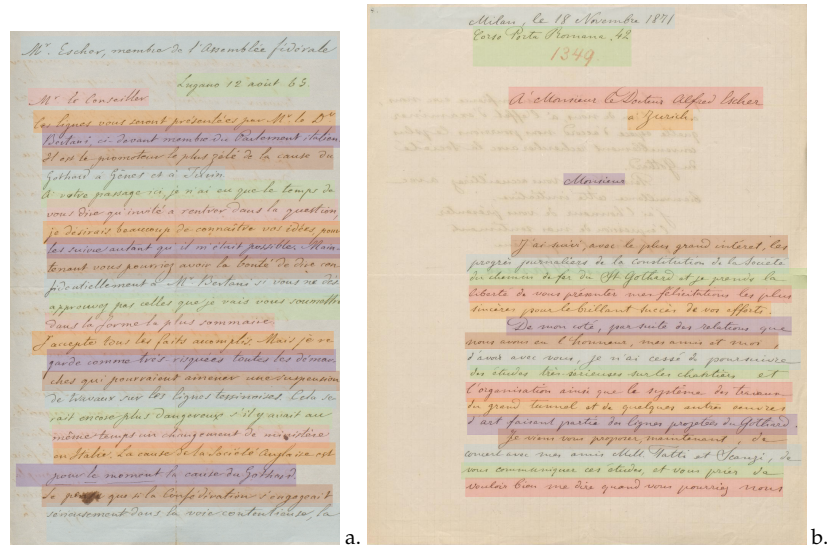 Mr. Escher, membre de l'Assemblée fédérale
Lugano 12 août 65.
Mr. le Conseiller
Ces lignes vous seront présentées par Mr. le Dr.
Bertani, ci-devant membre du Parlement italien.
Il est le promoteur le plus zélé de la cause du
Gothard à Gênes et à Turin.
A votre passage ici, je n'ai eu que le temps de
vous dire qu'invité à rentrer dans la question,
je désirais beaucoup de connaître vos idées, pour
les suivre autant qu'il m'était possible. Main-
tenant vous pourriez avoir la bonté de dire con-
fidentiellement à Mr. Bertani si vous ne dés-
approuvez pas celles que je vais vous soumettre
dans la forme la plus sommaire.
J'accepte tous les faits accomplis. Mais je re-
garde comme très risquées toutes les démar-
ches qui pourraient amener une suspension
de travaux sur les lignes tessinoises. Cela se-
rait encore plus dangereux s'il y avait au
même temps un changement de ministère
en Italie. La cause de la Société Anglaise est
pour le moment la cause du Gothard
Je pense que si la Confédération s'engageait
sérieusement dans la voie contentieuse, la
a.
Milan, le 18 Novembre 1871
Corso Porta Romana, 42
1349.
A Monsieur le Docteur Alfred Escher
à Zurich.
Monsieur
J'ai suivi, avec le plus grand intérêt, les
progrès journaliers de la constitution de la Société
du chemin de fer du St. Gothard et je prends la
liberté de vous présenter mes félicitations les plus
sincères pour le brillant succès de vos efforts.
De mon coté, par suite des relations que
nous avons eu l'honneur, mes amis et moi
d'avoir avec vous, je n'ai cessé de poursuivre
des études très sérieuses sur les chantiers et
l'organisation ainsi que le système des travaux
du grand tunnel et de quelques autres oeuvres
d'art faisant partie des lignes projetées du Gothard.
Je viens vous proposer, maintenant, de
concert avec mes amis Mell. Tatti et de
vous communiquer ces études, et vous prier de
vouloir bien me dire quand vous pourriez nous
b.